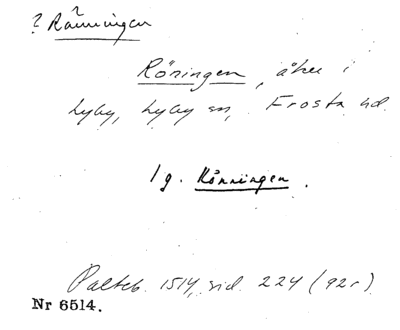 ? Rånningen
Röningen, åker i
Lyby, Lyby sn, Frosta hd.
1 g. Rönningen.
Palteb. 1514, sid. 224 (92r)
Nr 6514.